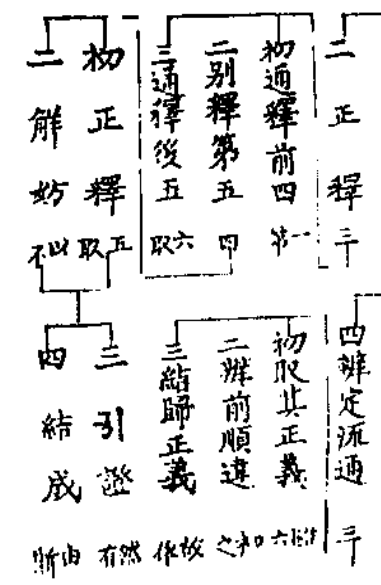 二正釋三
初通釋前四第一
二别釋第五四
三通釋後五取六
初正釋取五
二解妨不以
四辨定流通三
初取其正義
二辨前順違
三結歸正義依故
三引證有然
四結成斯由